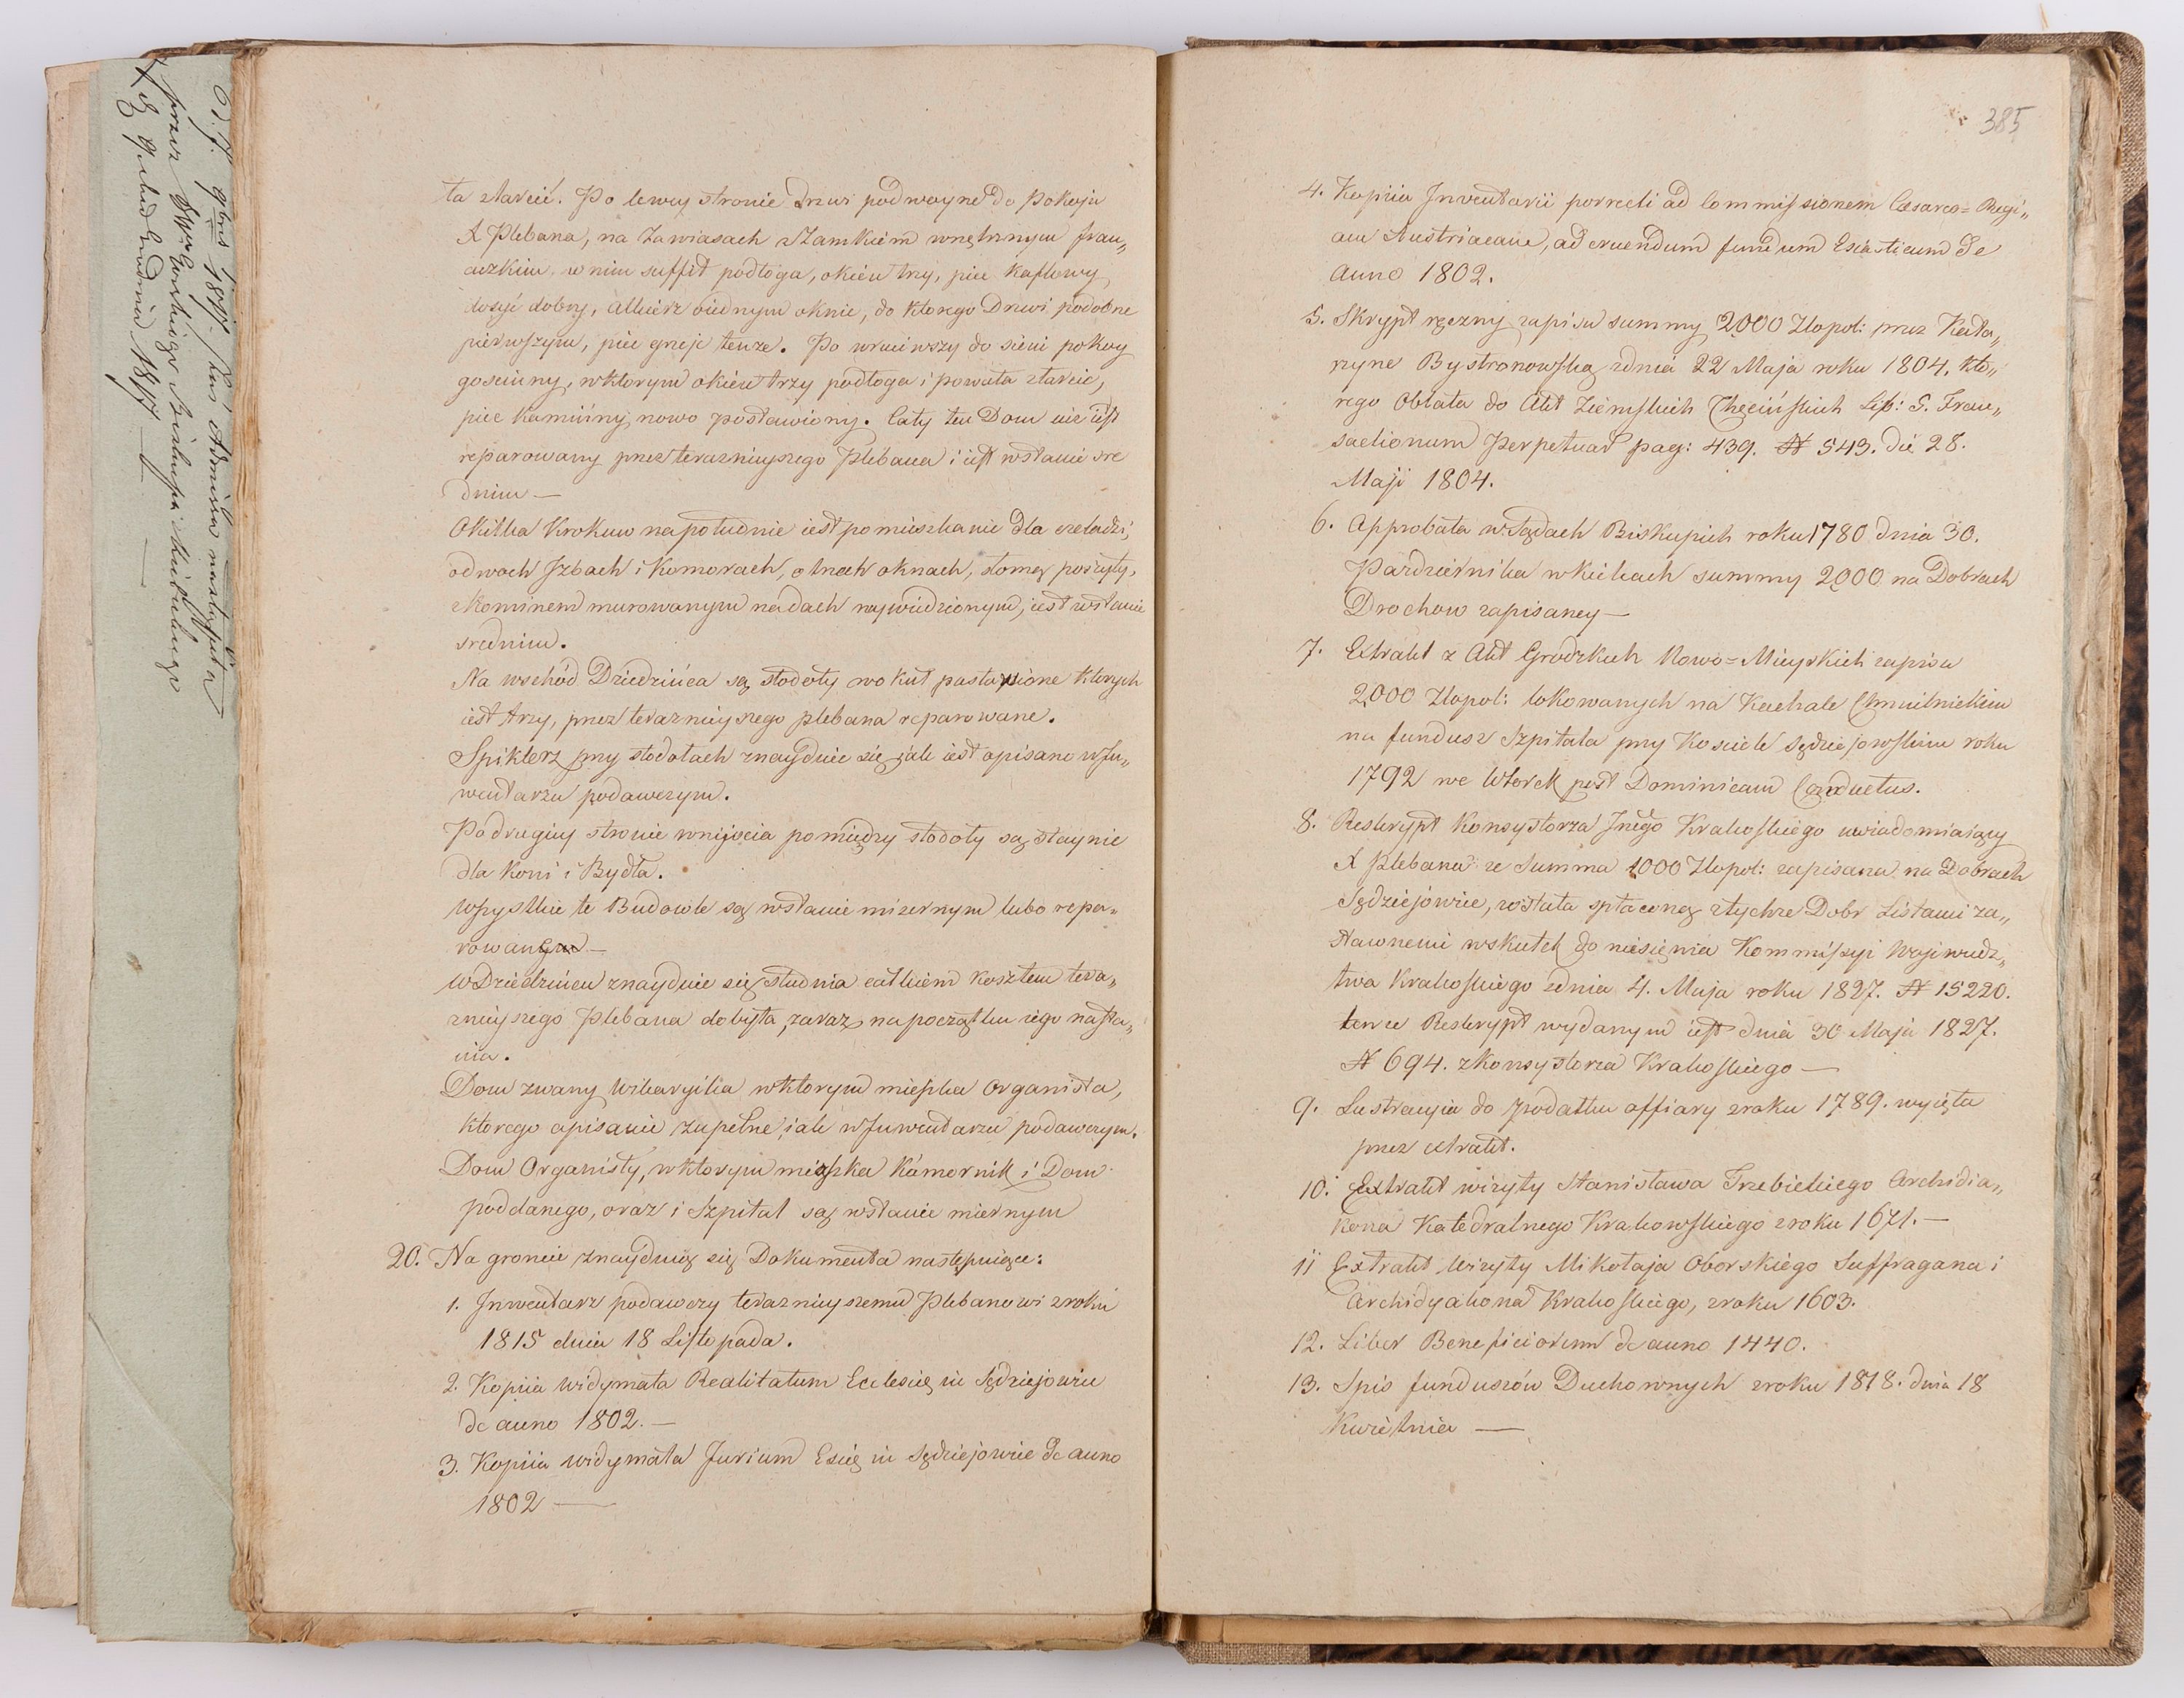 ta starcić. Po lewey stronie Drzwi podwoyne do Pokoju
X Plebana, na zawiasach z Zamkiem wnętrznym fran„
cuzkim, w nim suffit podłoga, okien trzy, piec kaflowy
dosyć dobry, alkierz o iednym oknie, do ktorego Drzwi podobne
pierwszym, piec grzeje tenze. Po wruciwszy do sieni pokoy
goscinny, w ktorym okien trzy podłoga i powała z tarcic,
piec kamiinny nowo postawiony. Cały ten Dom nie iest
reparowany przez terazniuyszego Plebana i iest w stanie sre
dnim —
O kilka krokuw na południe iest pomieszkanie dla czeladzi,
o dwoch Izbach i komorach, o trzech oknach, słomą poszyty,
z kominem murowanym na dach wywiedzionym, iest w stanie
srednim.
Na wschód Dziedzińca są stodoły w okuł pastawione ktorych
iest trzy, przez terazniuyszego plebana reparowane.
Spiklerz przy stodołach znayduie się jak iest opisano w In„
wentarzu podawczym.
Po drugiuy stronie wniyscia pomiędzy stodoły są staynie
dla koni i Bydła.
Wszystkie te Budowle są w stanie miernym lubo repa„
rowanym —
W Dziedzińcu znayduie się studnia całkiem kosztem tera„
zniuyszego Plebana dobyta, zaraz na początku iego nasta„
nia.
Dom zwany Wikaryika w ktorym mieszka Organista,
ktorego opisanie zupełne, iak w Inwentarzu podawczym.
Dom Organisty, w ktorym mieszka Kámornik i Dom
poddanego, oraz i Szpital są w stanie miernym
20. Na groncie znayduią się Dokumenta następuiące:
1. Inwentarz podawczy terazniuyszemu Plebanowi z roku
1815 dnia 18 Listopada.
2. Kopiia widymata Realitatum Ecclesię in Sędziejowie
de anno 1802. —
3. Kopiia widymata Jurium Esię in Sędziejowie de anno
1802 —
385
4. Kopiia Inventarii porrecti ad Commissionem Cæsareo=Regi„
am Austriacam, ad eruendum fundum Eccsticum de
anno 1802.
5. Skrypt ręczny zapisu summy 2000 Złopol: przez Kata„
rzyne Bystronowską z dnia 22 Maja roku 1804. kto„
rego Oblata do Akt Ziemskich Chęcińskich Lib: 5. Tran„
sactionum Perpetuar pag: 439. N 543. die 28.
Maji 1804.
6. Approbata w Sądach Biskupich roku 1780 dnia 30.
Pazdziernika w Kielcach summy 2000 na Dobrach
Drochow zapisaney —
7. Extrakt z Akt Grodzkich Nowo=Mieyskich zapisu
2000 Złopol: lokowanych na Kachale Chmielnickim
na fundusz Szpitala przy Kosciele Sędziejowskim roku
1792 we Wtorek post Dominicam Conductus.
8. Reskrypt Konsystorza Jnego Krakoskiego uwiadomiaiący
X Plebana ze Summa 1000 Złopol: zapisana na Dobrach
Sędziejowice, została spłaconą z tychze Dobr Listami za„
stawnemi w skutek doniesienia Kommissyi Wojewudz„
twa Krakoskiego z dnia 4. Maja roku 1827. N 15220.
tenze Reskrypt wydanym iest dnia 30 Maja 1827.
N 694. z Konsystorza Krakoskiego —
9. Lustracyia do podatku offiary z roku 1789. wyięta
przez extrakt.
10. Extrakt wizyty Stanisława Trzebickiego Archidia„
kona Katedralnego Krakowskiego z roku 1671. —
11 Extrakt wizyty Mikołaja Oborskiego Suffragana i
Archidyakona Krakoskiego, z roku 1603.
12. Liber Beneficiorum de anno 1440.
13. Spis funduszów Duchownych z roku 1818. dnia 18
Kwietnia —